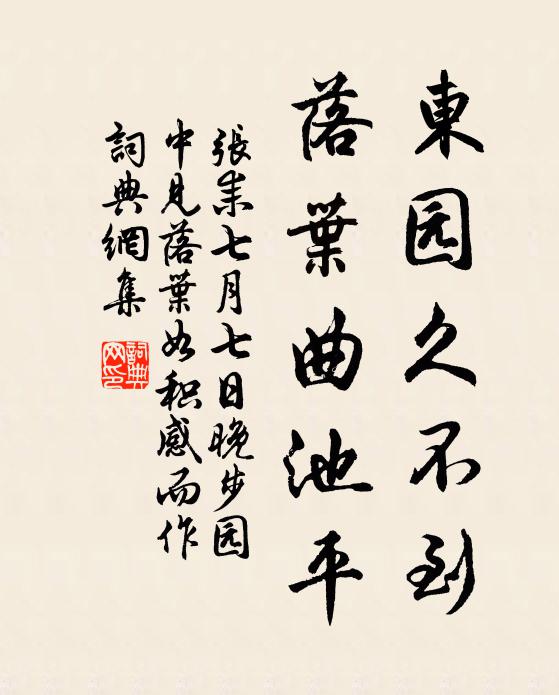 東园久不到
落葉曲池平
張耒七月七日晚步园
中見落葉如积感而作
詞典網集
詞典
网印